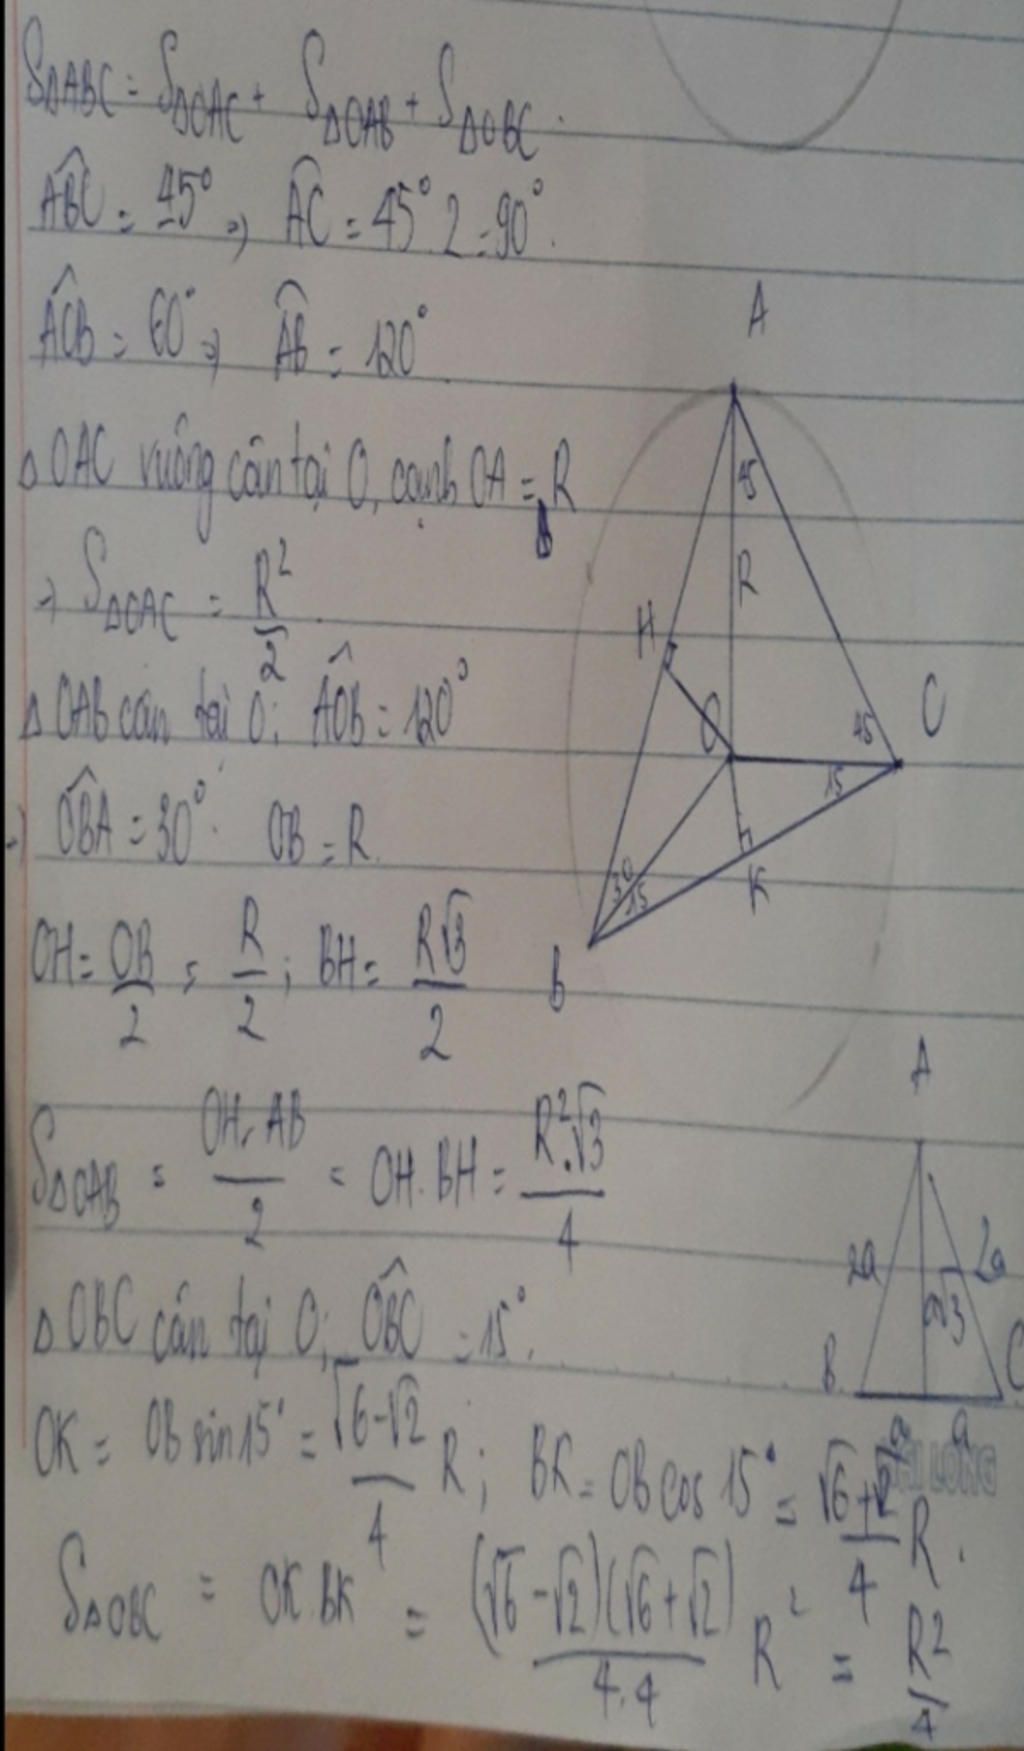 SΔABC = SΔOAC + SΔOAB + SΔOBC.
ABC̑ = 45° ⇒ AC̑ = 45°.2 = 90°.
ACB̂ = 60° ⇒ AB̑ = 120°
Δ OAC vuông cân tại O, cạnh OA = R
⇒ SΔOAC = R²/2.
Δ OAB cân tại O; AÔB = 120°
⇒ OB̂A = 30°. OB = R.
OH = OB/2 = R/2; BH = R√3/2
SΔOAB = OH.AB/2 = OH.BH = R².√3/4
Δ OBC cân tại O; OB̂C = 15°.
OK = OB sin 15° = √6-√2/4 R; BK = OB cos 15° = √6+√2/4 R.
SΔOBC = OK.BK = (√6-√2)(√6+√2)/4.4 R² = R²/4
A
45
R
H
O
45
C
15
30
15
K
B
A
2a
2a
a√3
B
C
a
a
HẢI LONG